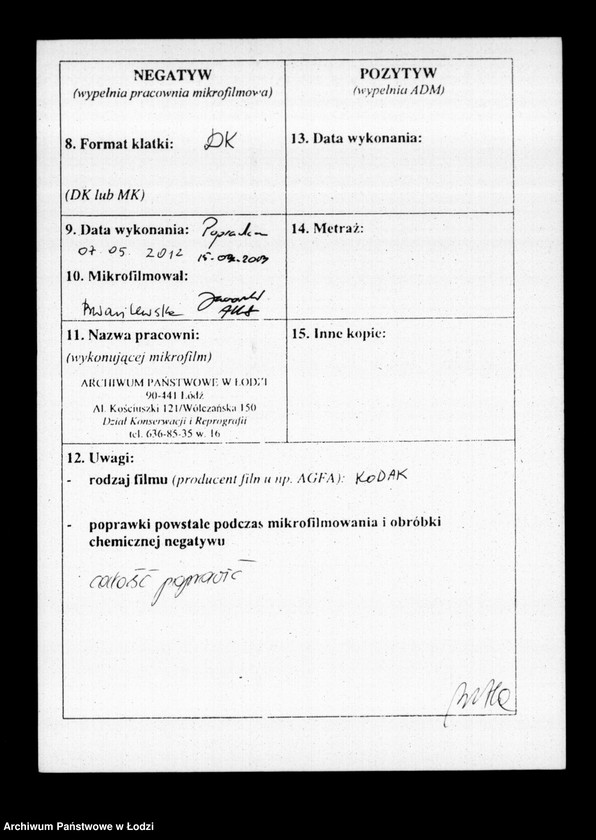 NEGATYW
(wypełnia pracownia mikrofilmowa)
8. Format klatki: DK
(DK lub MK)
9. Data wykonania:
07 05. 2012
10. Mikrofilmował:
11. Nazwa pracowni:
(wykonującej mikrofilm)
ARCHIWUM PAŃSTWOWE W ŁODZI
90-441 Łódź
Al. Kościuszki 121/Wólczańska 150
Dział Konserwacji i Reprografii
tel. 636-85-35 w. 16
POZYTYW
(wypełnia ADM)
13. Data wykonania:
14. Metraż:
15. Inne kopie:
12. Uwagi:
- rodzaj filmu (producent filmu np. AGFA): KODAK
- poprawki powstałe podczas mikrofilmowania i obróbki
chemicznej negatywu
całość poprawić
Archiwum Państwowe w Łodzi